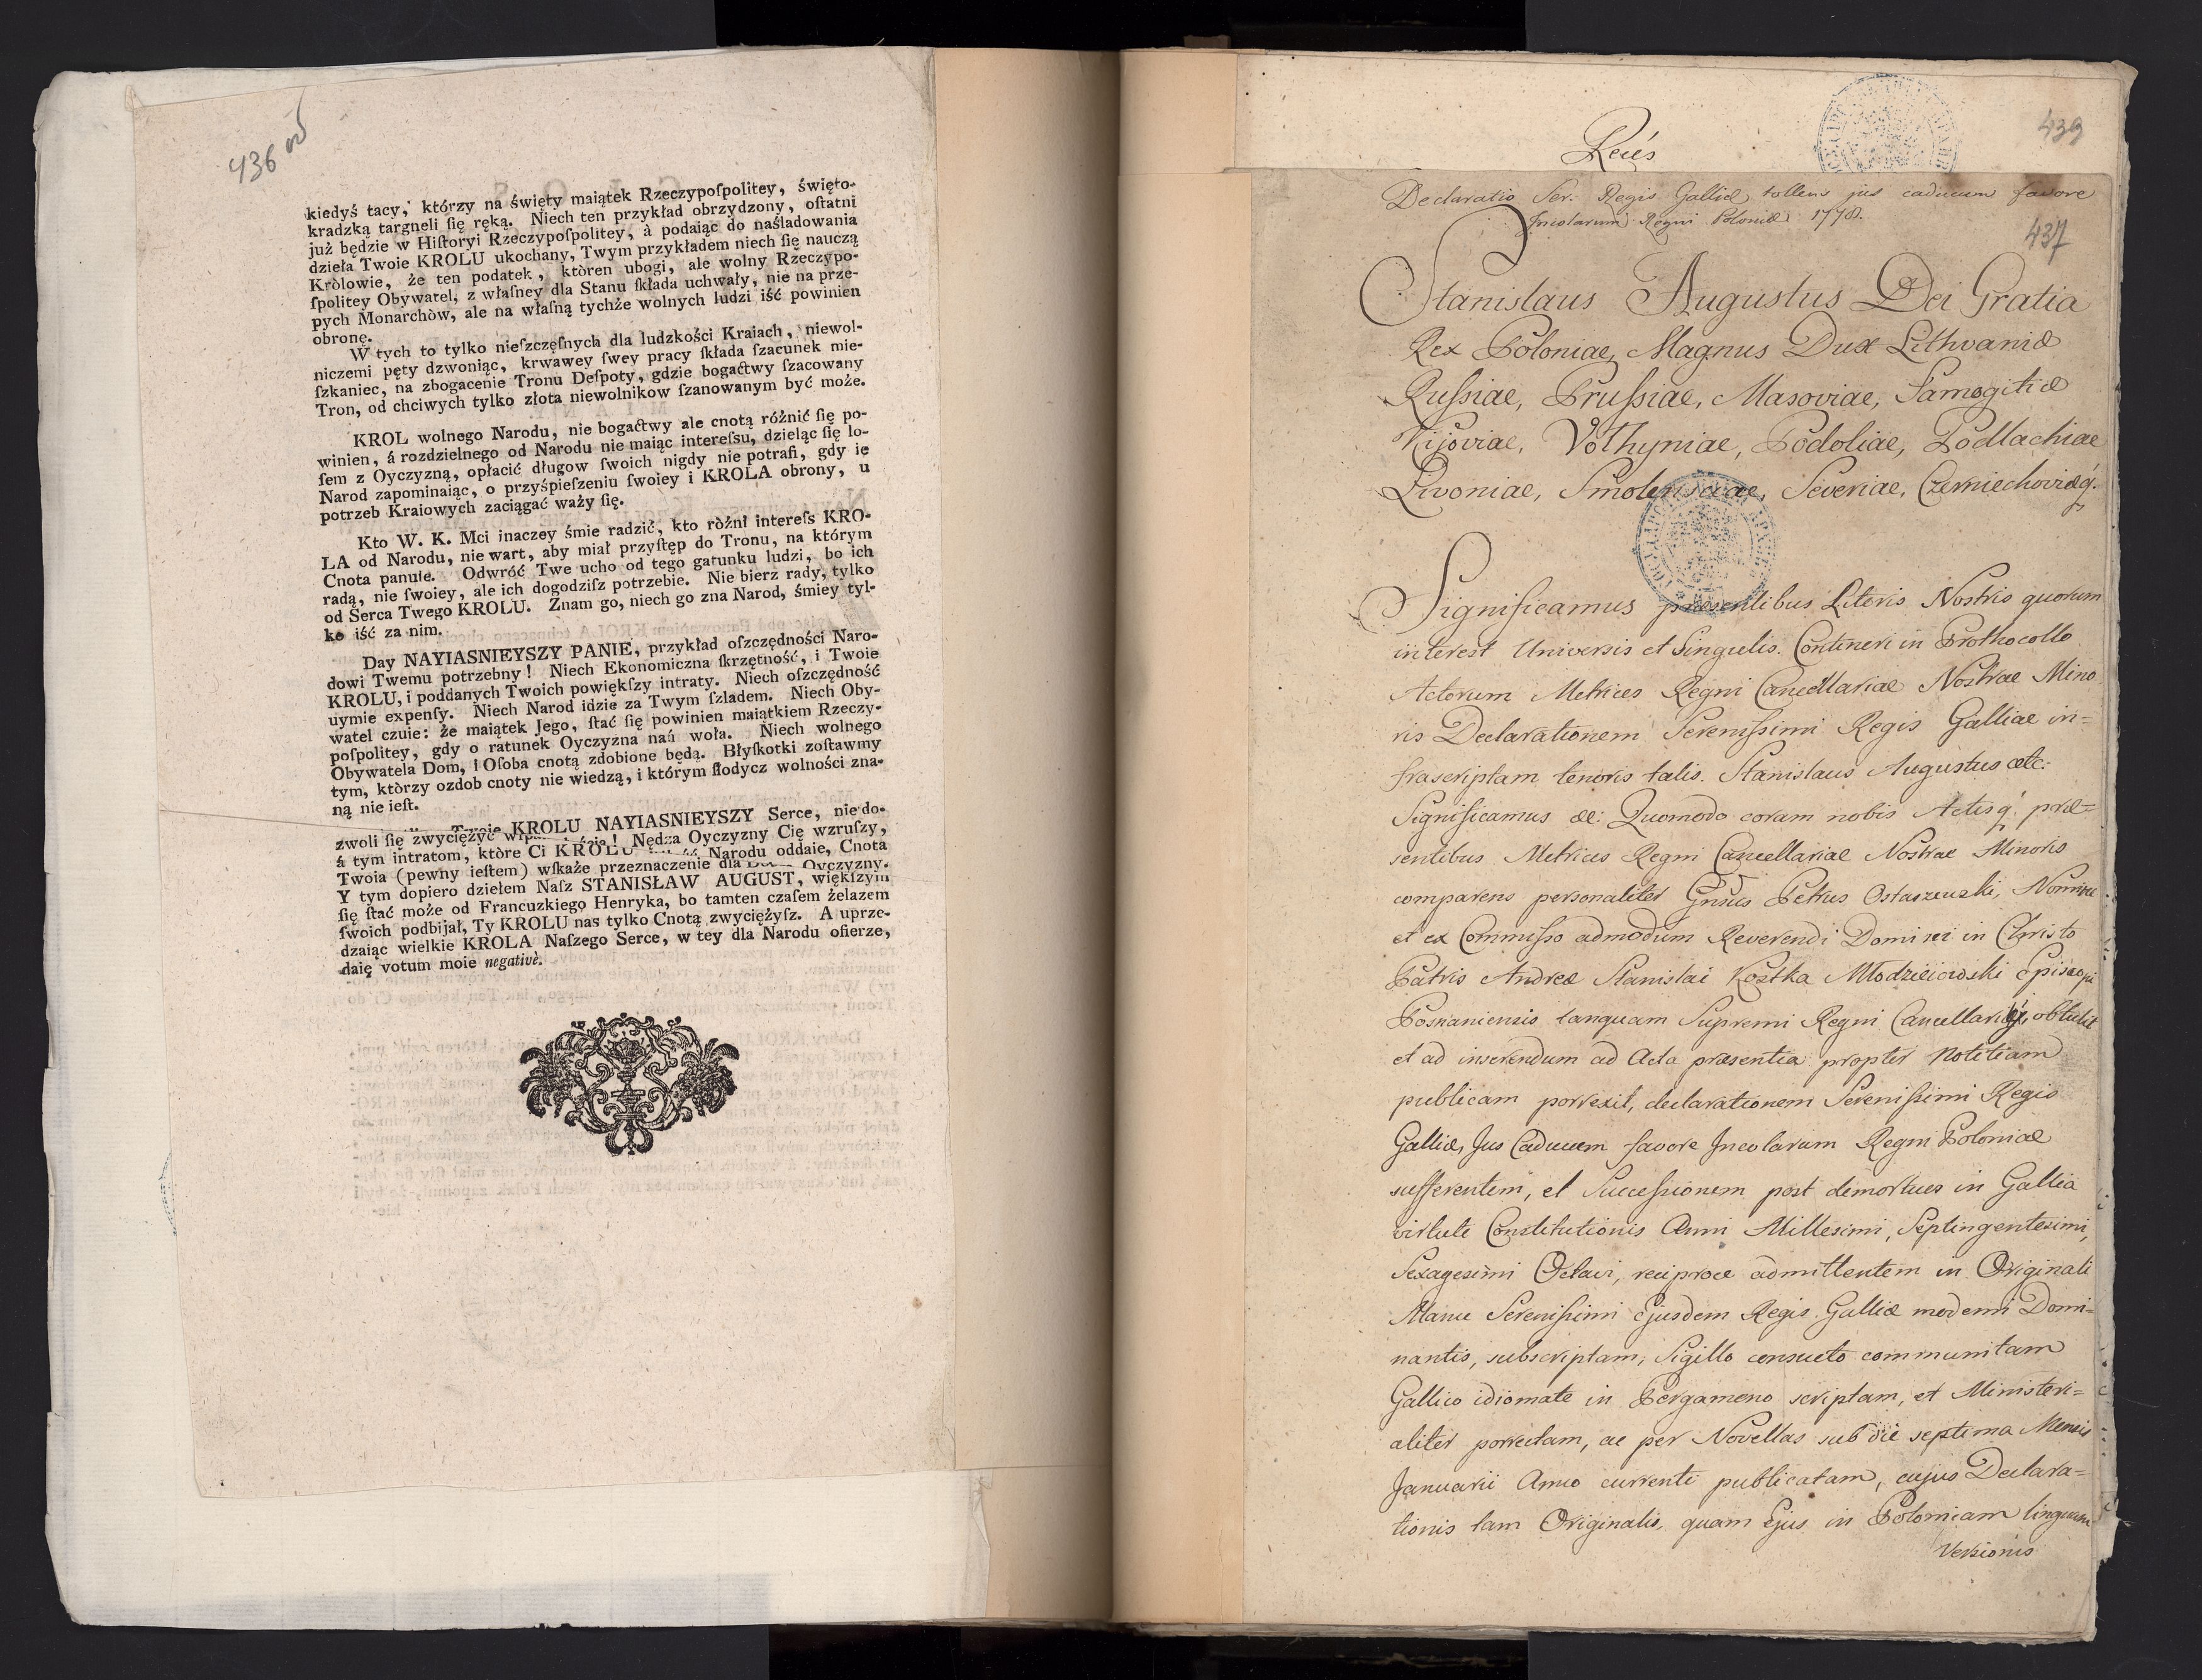 436 vo
kiedyś tacy, którzy na święty maiątek Rzeczypoſpolitey, święto-
kradzką targneli ſię ręką. Niech ten przykład obrzydzony, oſtatni
już będzie w Hiſtoryi Rzeczypoſpolitey, à podaiąc do naśladowania
dzieła Twoie KROLU ukochany, Twym przykładem niech ſię nauczą
Kròlowie, że ten podatek, któren ubogi, ale wolny Rzeczypo-
ſpolitey Obywatel, z właſney dla Stanu ſkłada uchwały, nie na prze-
pych Monarchòw, ale na właſną tychże wolnych ludzi iść powinien
obronę.
W tych to tylko nieſzczęſnych dla ludzkości Kraiach, niewol-
niczemi pęty dzwoniąc, krwawey ſwey pracy ſkłada ſzacunek mie-
ſzkaniec, na zbogacenie Tronu Deſpoty, gdzie bogactwy ſzacowany
Tron, od chciwych tylko złota niewolnikow ſzanowanym być może.
KROL wolnego Narodu, nie bogactwy ale cnotą różnić ſię po-
winien, á rozdzielnego od Narodu nie maiąc intereſsu, dzieląc ſię lo-
ſem z Oyczyzną, opłacić długow ſwoich nigdy nie potrafi, gdy ie
Narod zapominaiąc, o przyśpieſzeniu ſwoiey i KROLA obrony, u
potrzeb Kraiowych zaciągać waży ſię.
Kto W. K. Mci inaczey śmie radzić, kto ròżni intereſs KRO-
LA od Narodu, nie wart, aby miał przyſtęp do Tronu, na którym
Cnota panuie. Odwróć Twe ucho od tego gatunku ludzi, bo ich
radą, nie ſwoiey, ale ich dogodziſz potrzebie. Nie bierz rady, tylko
od Serca Twego KROLU. Znam go, niech go zna Narod, śmiey tyl-
ko iść za nim.
Day NAYIASNIEYSZY PANIE, przykład oſzczędności Naro-
dowi Twemu potrzebny! Niech Ekonomiczna ſkrzętność, i Twoie
KROLU, i poddanych Twoich powiękſzy intraty. Niech oſzczędność
uymie expenſy. Niech Narod idzie za Twym ſzladem. Niech Oby-
watel czuie: że maiątek Jego, ſtać ſię powinien maiątkiem Rzeczy-
poſpolitey, gdy o ratunek Oyczyzna nań woła. Niech wolnego
Obywatela Dom, i Oſoba cnotą zdobione będą. Błyſkotki zoſtawmy
tym, ktòrzy ozdob cnoty nie wiedzą, i którym ſłodycz wolności zna-
ną nie ieſt.
Twoie KROLU NAYIASNIEYSZY Serce, nie do-
zwoli ſię zwyciężyć Nędza Oyczyzny Cię wzruſzy,
á tym intratom, które Ci KRÓLU Narodu oddaie, Cnota
Twoia (pewny ieſtem) wſkaże przeznaczenie dla Oyczyzny.
Y tym dopiero dziełem Naſz STANISŁAW AUGUST, więkſzym
ſię ſtać może od Francuzkiego Henryka, bo tamten czaſem żelazem
ſwoich podbijał, Ty KROLU nas tylko Cnotą zwyciężyſz. A uprze-
dzaiąc wielkie KROLA Naſzego Serce, w tey dla Narodu ofierze,
daię votum moie negativè.
439
Declaratio Ser. Regis Galliæ tollens jus caducum favore
Incolarum Regni Poloniæ 1778.
437
Stanislaus Augustus Dei Gratia
Rex Poloniae, Magnus Dux Lithvaniæ
Rusſiae, Prusſiae, Masoviae, Samogitiæ
Kijoviae, Volhyniae, Podoliae, Podlachiae
Livoniae, Smolensciae, Severiae, Czerniechoviaeq́.
Significamus præsentibus Literis Nostris quorum
interest Universis et Singulis. Contineri in Prothocollo
Actorum Metrices Regni Cancellariae Nostrae Mino
ris Declarationem Serenisſimi Regis Galliae in=
frascriptam tenoris talis. Stanislaus Augustus ætc:
Significamus æc: Quomodo coram nobis Actisq́. præ=
sentibus Metrices Regni Cancellariae Nostrae Minoris
comparens personaliter Gnsus Petrus Ostaszewski, Nomine
et ex Commisſo admodum Reverendi Domini in Christo
Patris Andreæ Stanislai Kostka Młodzieiowski Episcopi
Posnaniensis tanquam Supremi Regni Cancellarii, obtulit
et ad inserendum ad Acta præsentia propter Notitiam
publicam porrexit, declarationem Serenisſimi Regis
Galliæ, Jus Caducum favore Incolarum Regni Poloniae
sufferentem, et Succesſionem post demortuos in Gallia
virtute Constitutionis Anni Millesimi, Septingentesimi,
Sexagesimi Octavi, reciproce admittentem in Originali
Manu Serenisſimi Ejusdem Regis Galliæ moderni Domi=
nantis, subscriptam, Sigillo consueto communitam
Gallico idiomate in Pergameno scriptam, et Ministeri=
aliter porrectam, ac per Novellas sub die septima Mensis
Januarii Anno currenti publicatam, cujus Declara=
tionis tam Originalis, quam Ejus in Polonicam linguam
Versionis